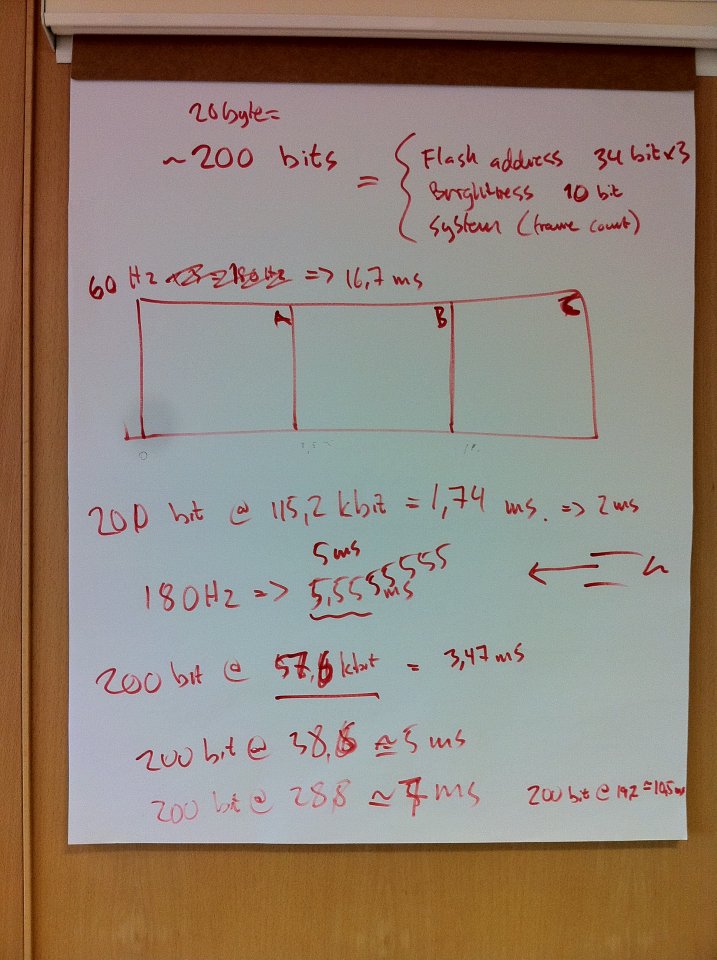 20byte=
~200 bits = { Flash address 34 bit x3
Brightness 10 bit
System (frame count)
60 Hz x3 = 180Hz => 16,7 ms
A B C
0
200 bit @ 115,2 kbit = 1,74 ms. => 2 ms
5 ms
180Hz => 5,55555555 ms
200 bit @ 57,6 kbit = 3,47 ms
200 bit @ 38,6 ≈ 5 ms
200 bit @ 28,8 ≈ 7 ms
200 bit @ 19,2 ≈ 10,5 ms